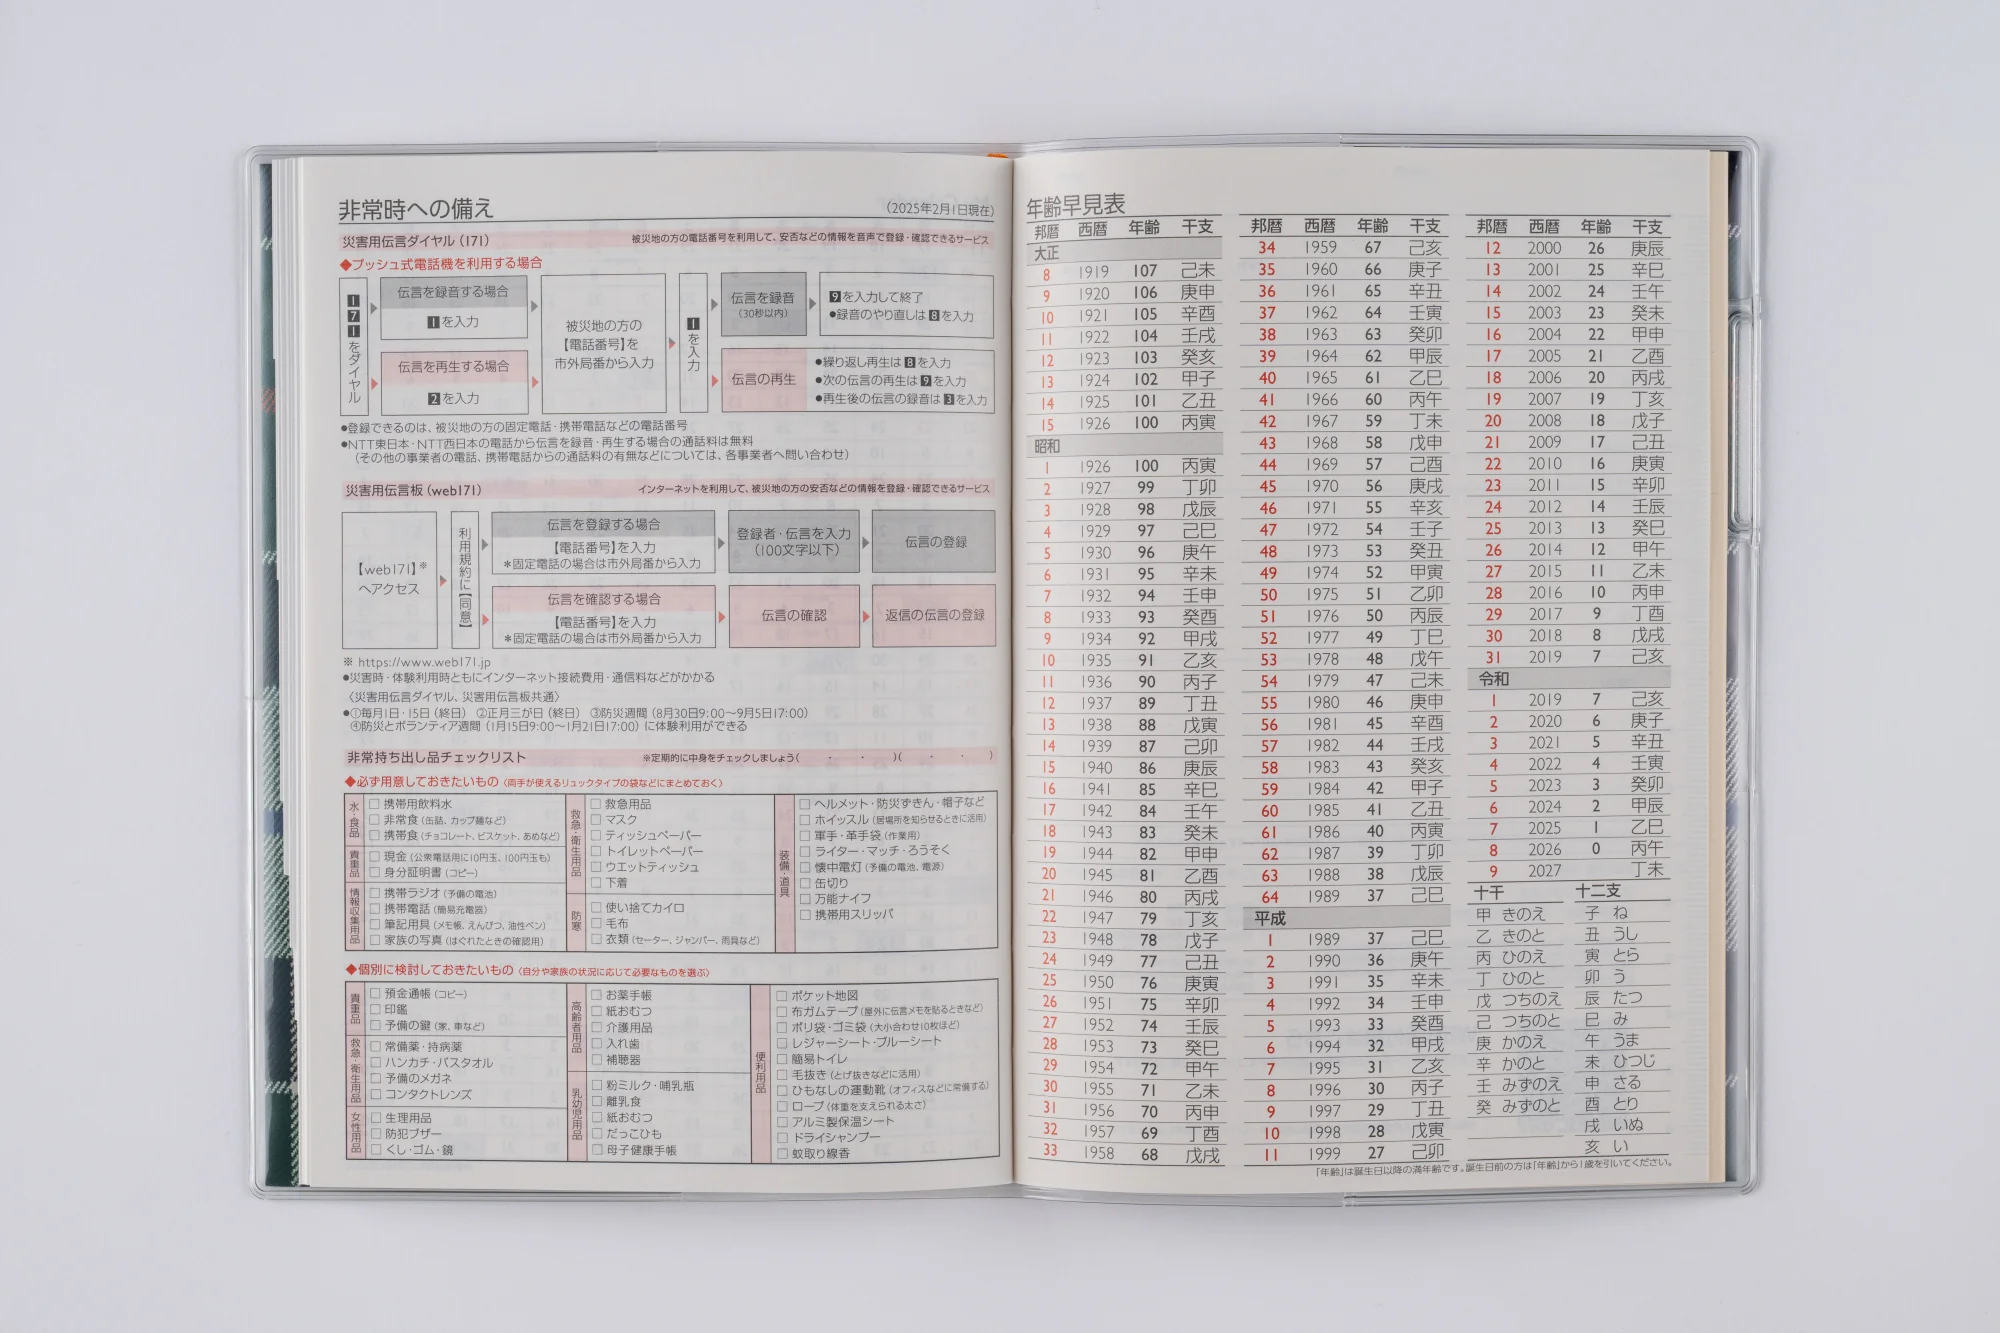 非常時への備え
（2025年2月1日現在）
災害用伝言ダイヤル（171）
被災地の方の電話番号を利用して、安否などの情報を音声で登録・確認できるサービス
◆プッシュ式電話機を利用する場合
171をダイヤル
伝言を録音する場合
1を入力
伝言を再生する場合
2を入力
被災地の方の
【電話番号】を
市外局番から入力
1を入力
伝言を録音
（30秒以内）
9を入力して終了
●録音のやり直しは8を入力
伝言の再生
●繰り返し再生は8を入力
●次の伝言の再生は9を入力
●再生後の伝言の録音は3を入力
●登録できるのは、被災地の方の固定電話・携帯電話などの電話番号
●NTT東日本・NTT西日本の電話から伝言を録音・再生する場合の通話料は無料
（その他の事業者の電話、携帯電話からの通話料の有無などについては、各事業者へ問い合わせ）
災害用伝言板（web171）
インターネットを利用して、被災地の方の安否などの情報を登録・確認できるサービス
【web171】※
へアクセス
利用規約に【同意】
伝言を登録する場合
【電話番号】を入力
＊固定電話の場合は市外局番から入力
登録者・伝言を入力
（100文字以下）
伝言の登録
伝言を確認する場合
【電話番号】を入力
＊固定電話の場合は市外局番から入力
伝言の確認
返信の伝言の登録
※ https://www.web171.jp
●災害時・体験利用時ともにインターネット接続費用・通信料などがかかる
〈災害用伝言ダイヤル、災害用伝言板共通〉
●①毎月1日・15日（終日） ②正月三が日（終日） ③防災週間（8月30日9:00〜9月5日17:00）
④防災とボランティア週間（1月15日9:00〜1月21日17:00）に体験利用ができる
非常持ち出し品チェックリスト
※定期的に中身をチェックしましょう（ ・ ・ ）（ ・ ・ ）
◆必ず用意しておきたいもの〈両手が使えるリュックタイプの袋などにまとめておく〉
水・食品
□ 携帯用飲料水
□ 非常食（缶詰、カップ麺など）
□ 携帯食（チョコレート、ビスケット、あめなど）
貴重品
□ 現金（公衆電話用に10円玉、100円玉も）
□ 身分証明書（コピー）
情報収集用品
□ 携帯ラジオ（予備の電池）
□ 携帯電話（簡易充電器）
□ 筆記用具（メモ帳、えんぴつ、油性ペン）
□ 家族の写真（はぐれたときの確認用）
救急・衛生用品
□ 救急用品
□ マスク
□ ティッシュペーパー
□ トイレットペーパー
□ ウエットティッシュ
□ 下着
防寒
□ 使い捨てカイロ
□ 毛布
□ 衣類（セーター、ジャンパー、雨具など）
装備・道具
□ ヘルメット・防災ずきん・帽子など
□ ホイッスル（居場所を知らせるときに活用）
□ 軍手・革手袋（作業用）
□ ライター・マッチ・ろうそく
□ 懐中電灯（予備の電池、電源）
□ 缶切り
□ 万能ナイフ
□ 携帯用スリッパ
◆個別に検討しておきたいもの〈自分や家族の状況に応じて必要なものを選ぶ〉
貴重品
□ 預金通帳（コピー）
□ 印鑑
□ 予備の鍵（家、車など）
救急・衛生用品
□ 常備薬・持病薬
□ ハンカチ・バスタオル
□ 予備のメガネ
□ コンタクトレンズ
女性用品
□ 生理用品
□ 防犯ブザー
□ くし・ゴム・鏡
高齢者用品
□ お薬手帳
□ 紙おむつ
□ 介護用品
□ 入れ歯
□ 補聴器
乳幼児用品
□ 粉ミルク・哺乳瓶
□ 離乳食
□ 紙おむつ
□ だっこひも
□ 母子健康手帳
便利用品
□ ポケット地図
□ 布ガムテープ（屋外に伝言メモを貼るときなど）
□ ポリ袋・ゴミ袋（大小合わせ10枚ほど）
□ レジャーシート・ブルーシート
□ 簡易トイレ
□ 毛抜き（とげ抜きなどに活用）
□ ひもなしの運動靴（オフィスなどに常備する）
□ ロープ（体重を支えられる太さ）
□ アルミ製保温シート
□ ドライシャンプー
□ 蚊取り線香
年齢早見表
邦暦 西暦 年齢 干支
大正
8 1919 107 己未
9 1920 106 庚申
10 1921 105 辛酉
11 1922 104 壬戌
12 1923 103 癸亥
13 1924 102 甲子
14 1925 101 乙丑
15 1926 100 丙寅
昭和
1 1926 100 丙寅
2 1927 99 丁卯
3 1928 98 戊辰
4 1929 97 己巳
5 1930 96 庚午
6 1931 95 辛未
7 1932 94 壬申
8 1933 93 癸酉
9 1934 92 甲戌
10 1935 91 乙亥
11 1936 90 丙子
12 1937 89 丁丑
13 1938 88 戊寅
14 1939 87 己卯
15 1940 86 庚辰
16 1941 85 辛巳
17 1942 84 壬午
18 1943 83 癸未
19 1944 82 甲申
20 1945 81 乙酉
21 1946 80 丙戌
22 1947 79 丁亥
23 1948 78 戊子
24 1949 77 己丑
25 1950 76 庚寅
26 1951 75 辛卯
27 1952 74 壬辰
28 1953 73 癸巳
29 1954 72 甲午
30 1955 71 乙未
31 1956 70 丙申
32 1957 69 丁酉
33 1958 68 戊戌
邦暦 西暦 年齢 干支
34 1959 67 己亥
35 1960 66 庚子
36 1961 65 辛丑
37 1962 64 壬寅
38 1963 63 癸卯
39 1964 62 甲辰
40 1965 61 乙巳
41 1966 60 丙午
42 1967 59 丁未
43 1968 58 戊申
44 1969 57 己酉
45 1970 56 庚戌
46 1971 55 辛亥
47 1972 54 壬子
48 1973 53 癸丑
49 1974 52 甲寅
50 1975 51 乙卯
51 1976 50 丙辰
52 1977 49 丁巳
53 1978 48 戊午
54 1979 47 己未
55 1980 46 庚申
56 1981 45 辛酉
57 1982 44 壬戌
58 1983 43 癸亥
59 1984 42 甲子
60 1985 41 乙丑
61 1986 40 丙寅
62 1987 39 丁卯
63 1988 38 戊辰
64 1989 37 己巳
平成
1 1989 37 己巳
2 1990 36 庚午
3 1991 35 辛未
4 1992 34 壬申
5 1993 33 癸酉
6 1994 32 甲戌
7 1995 31 乙亥
8 1996 30 丙子
9 1997 29 丁丑
10 1998 28 戊寅
11 1999 27 己卯
邦暦 西暦 年齢 干支
12 2000 26 庚辰
13 2001 25 辛巳
14 2002 24 壬午
15 2003 23 癸未
16 2004 22 甲申
17 2005 21 乙酉
18 2006 20 丙戌
19 2007 19 丁亥
20 2008 18 戊子
21 2009 17 己丑
22 2010 16 庚寅
23 2011 15 辛卯
24 2012 14 壬辰
25 2013 13 癸巳
26 2014 12 甲午
27 2015 11 乙未
28 2016 10 丙申
29 2017 9 丁酉
30 2018 8 戊戌
31 2019 7 己亥
令和
1 2019 7 己亥
2 2020 6 庚子
3 2021 5 辛丑
4 2022 4 壬寅
5 2023 3 癸卯
6 2024 2 甲辰
7 2025 1 乙巳
8 2026 0 丙午
9 2027 丁未
十干 十二支
甲 きのえ 子 ね
乙 きのと 丑 うし
丙 ひのえ 寅 とら
丁 ひのと 卯 う
戊 つちのえ 辰 たつ
己 つちのと 巳 み
庚 かのえ 午 うま
辛 かのと 未 ひつじ
壬 みずのえ 申 さる
癸 みずのと 酉 とり
戌 いぬ
亥 い
「年齢」は誕生日以降の満年齢です。誕生日前の方は「年齢」から1歳を引いてください。